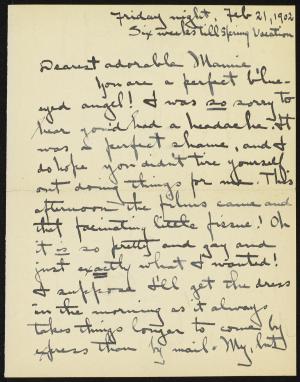 Friday night, Feb 21, 1902
Six weeks till Spring Vacation
Dearest adorable Mamie
You are a perfect blue-
eyed angel! I was so sorry to
hear you'd had a headache. It
was a perfect shame, and I
do hope you didn't tire yourself
out doing things for me. This
afternoon the films came and
that fascinating little fissue! Oh
it is so pretty and gay and
just exactly what I wanted!
I suppose I'll get the dress
in the morning as it always
takes things longer to come by
express than by mail. My, but